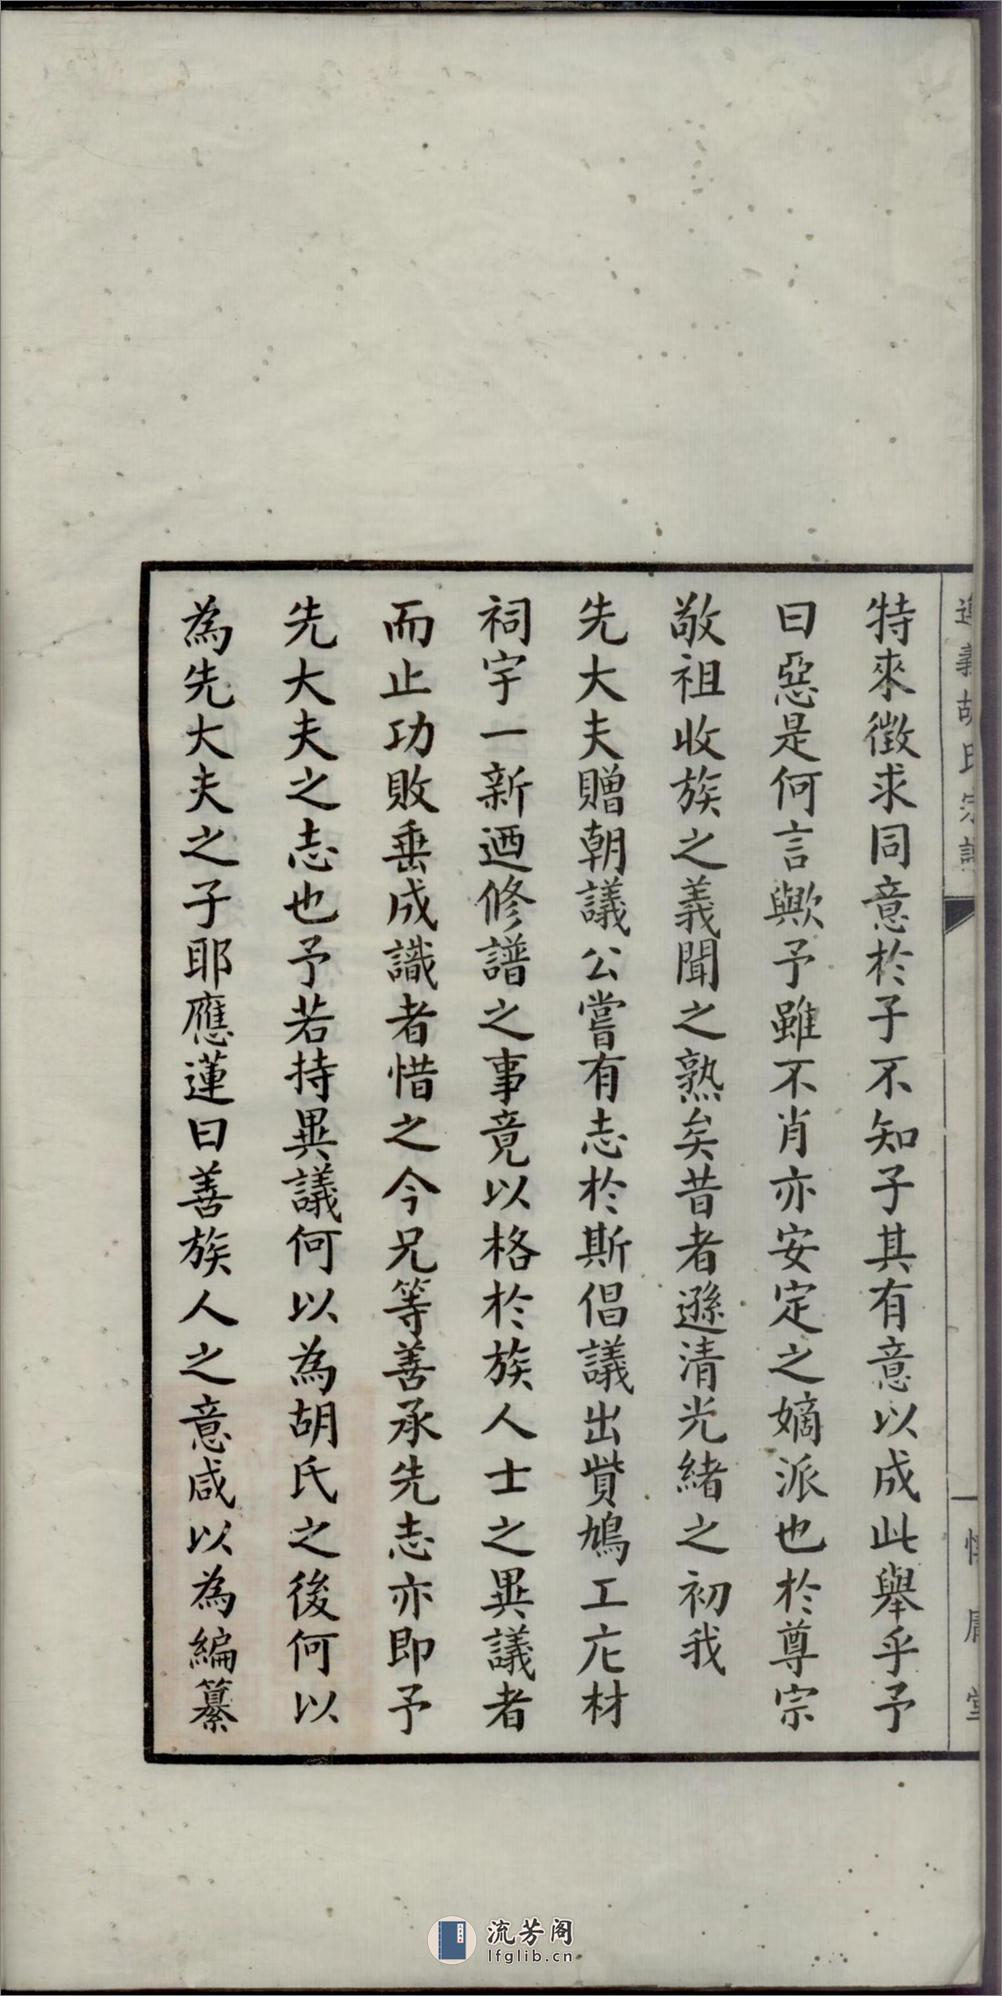 特來徵求同意於子不知子其有意以成此舉乎予
曰惡是何言歟予雖不肖亦安定之嫡派也於尊宗
敬祖收族之義聞之熟矣昔者遜清光緒之初我
先大夫贈朝議公嘗有志於斯倡議出貲鳩工庀材
祠宇一新迺修譜之事竟以格於族人士之異議者
而止功敗垂成識者惜之今兄等善承先志亦即予
先大夫之志也予若持異議何以為胡氏之後何以
為先大夫之子耶應蓮曰善族人之意咸以為編纂
流芳阁
lfglib.cn